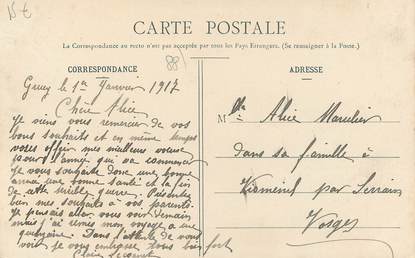 15 €
CARTE POSTALE
La Correspondance au recto n'est pas acceptée par tous les Pays Etrangers. (Se renseigner à la Poste.)
CORRESPONDANCE
le 1er Janvier 1917
Chère Alice
Je viens vous remercier de vos
bons souhaits et en même temps
vous offrir mes meilleurs voeux
pour l'année qui va commencer
je vous souhaite donc une bonne
année une bonne santé et la fin
de cette guerre. Présentez
bien mes souhaits à vos parents.
Je pensais aller vous voir demain
mais j'ai remis mon voyage a une
quinzaine. Dans l'attente de vous
voir je vous embrasse tous bien fort
ADRESSE
Mlle Alice
dans sa famille à
par
Vosges